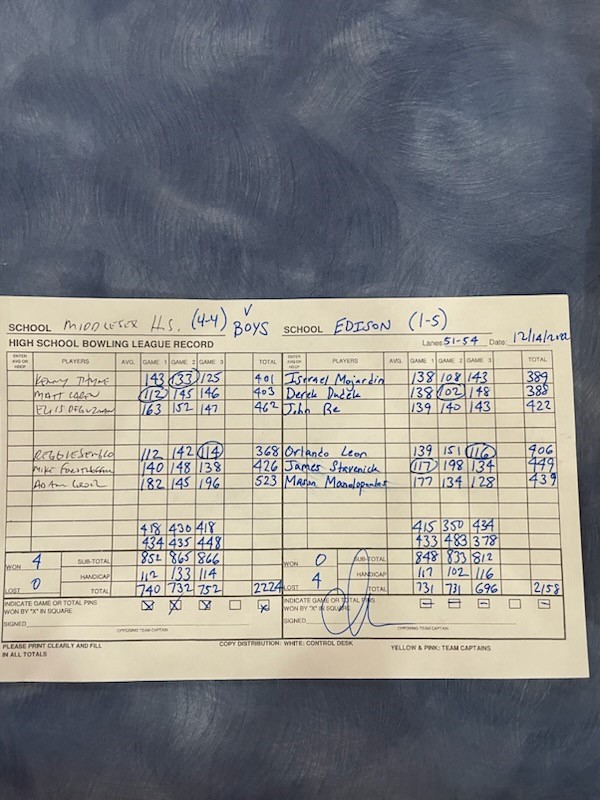 SCHOOL MIDDLESEX H.S. (4-4) V BOYS SCHOOL EDISON (1-5)
HIGH SCHOOL BOWLING LEAGUE RECORD Lanes 51-54 Date:
ENTER AVG OR HDCP PLAYERS AVG. GAME 1 GAME 2 GAME 3 TOTAL ENTER AVG OR HDCP PLAYERS AVG. GAME 1 GAME 2 GAME 3 TOTAL
KENNY 143 133 125 401 Isereal Mojardin 138 108 143 389
MATT 112 145 146 403 Derek 138 102 148 388
163 152 147 462 John Re 139 140 143 422
REGGIE 112 142 114 368 Orlando Leon 139 151 116 406
MIKE 140 148 138 426 James Stavenick 117 198 134 449
ADAM 182 145 196 523 Mason Manolopoulos 177 134 128 439
418 430 418 415 350 434
434 435 448 433 483 378
WON 4 SUB-TOTAL 852 865 866 WON 0 SUB-TOTAL 848 833 812
HANDICAP 112 133 114 HANDICAP 117 102 116
LOST 0 TOTAL 740 732 752 2224 LOST 4 TOTAL 731 731 696 2158
INDICATE GAME OR TOTAL PINS WON BY "X" IN SQUARE X X X X INDICATE GAME OR TOTAL PINS WON BY "X" IN SQUARE - - - -
SIGNED SIGNED
OPPOSING TEAM CAPTAIN OPPOSING TEAM CAPTAIN
PLEASE PRINT CLEARLY AND FILL IN ALL TOTALS COPY DISTRIBUTION: WHITE: CONTROL DESK YELLOW & PINK: TEAM CAPTAINS